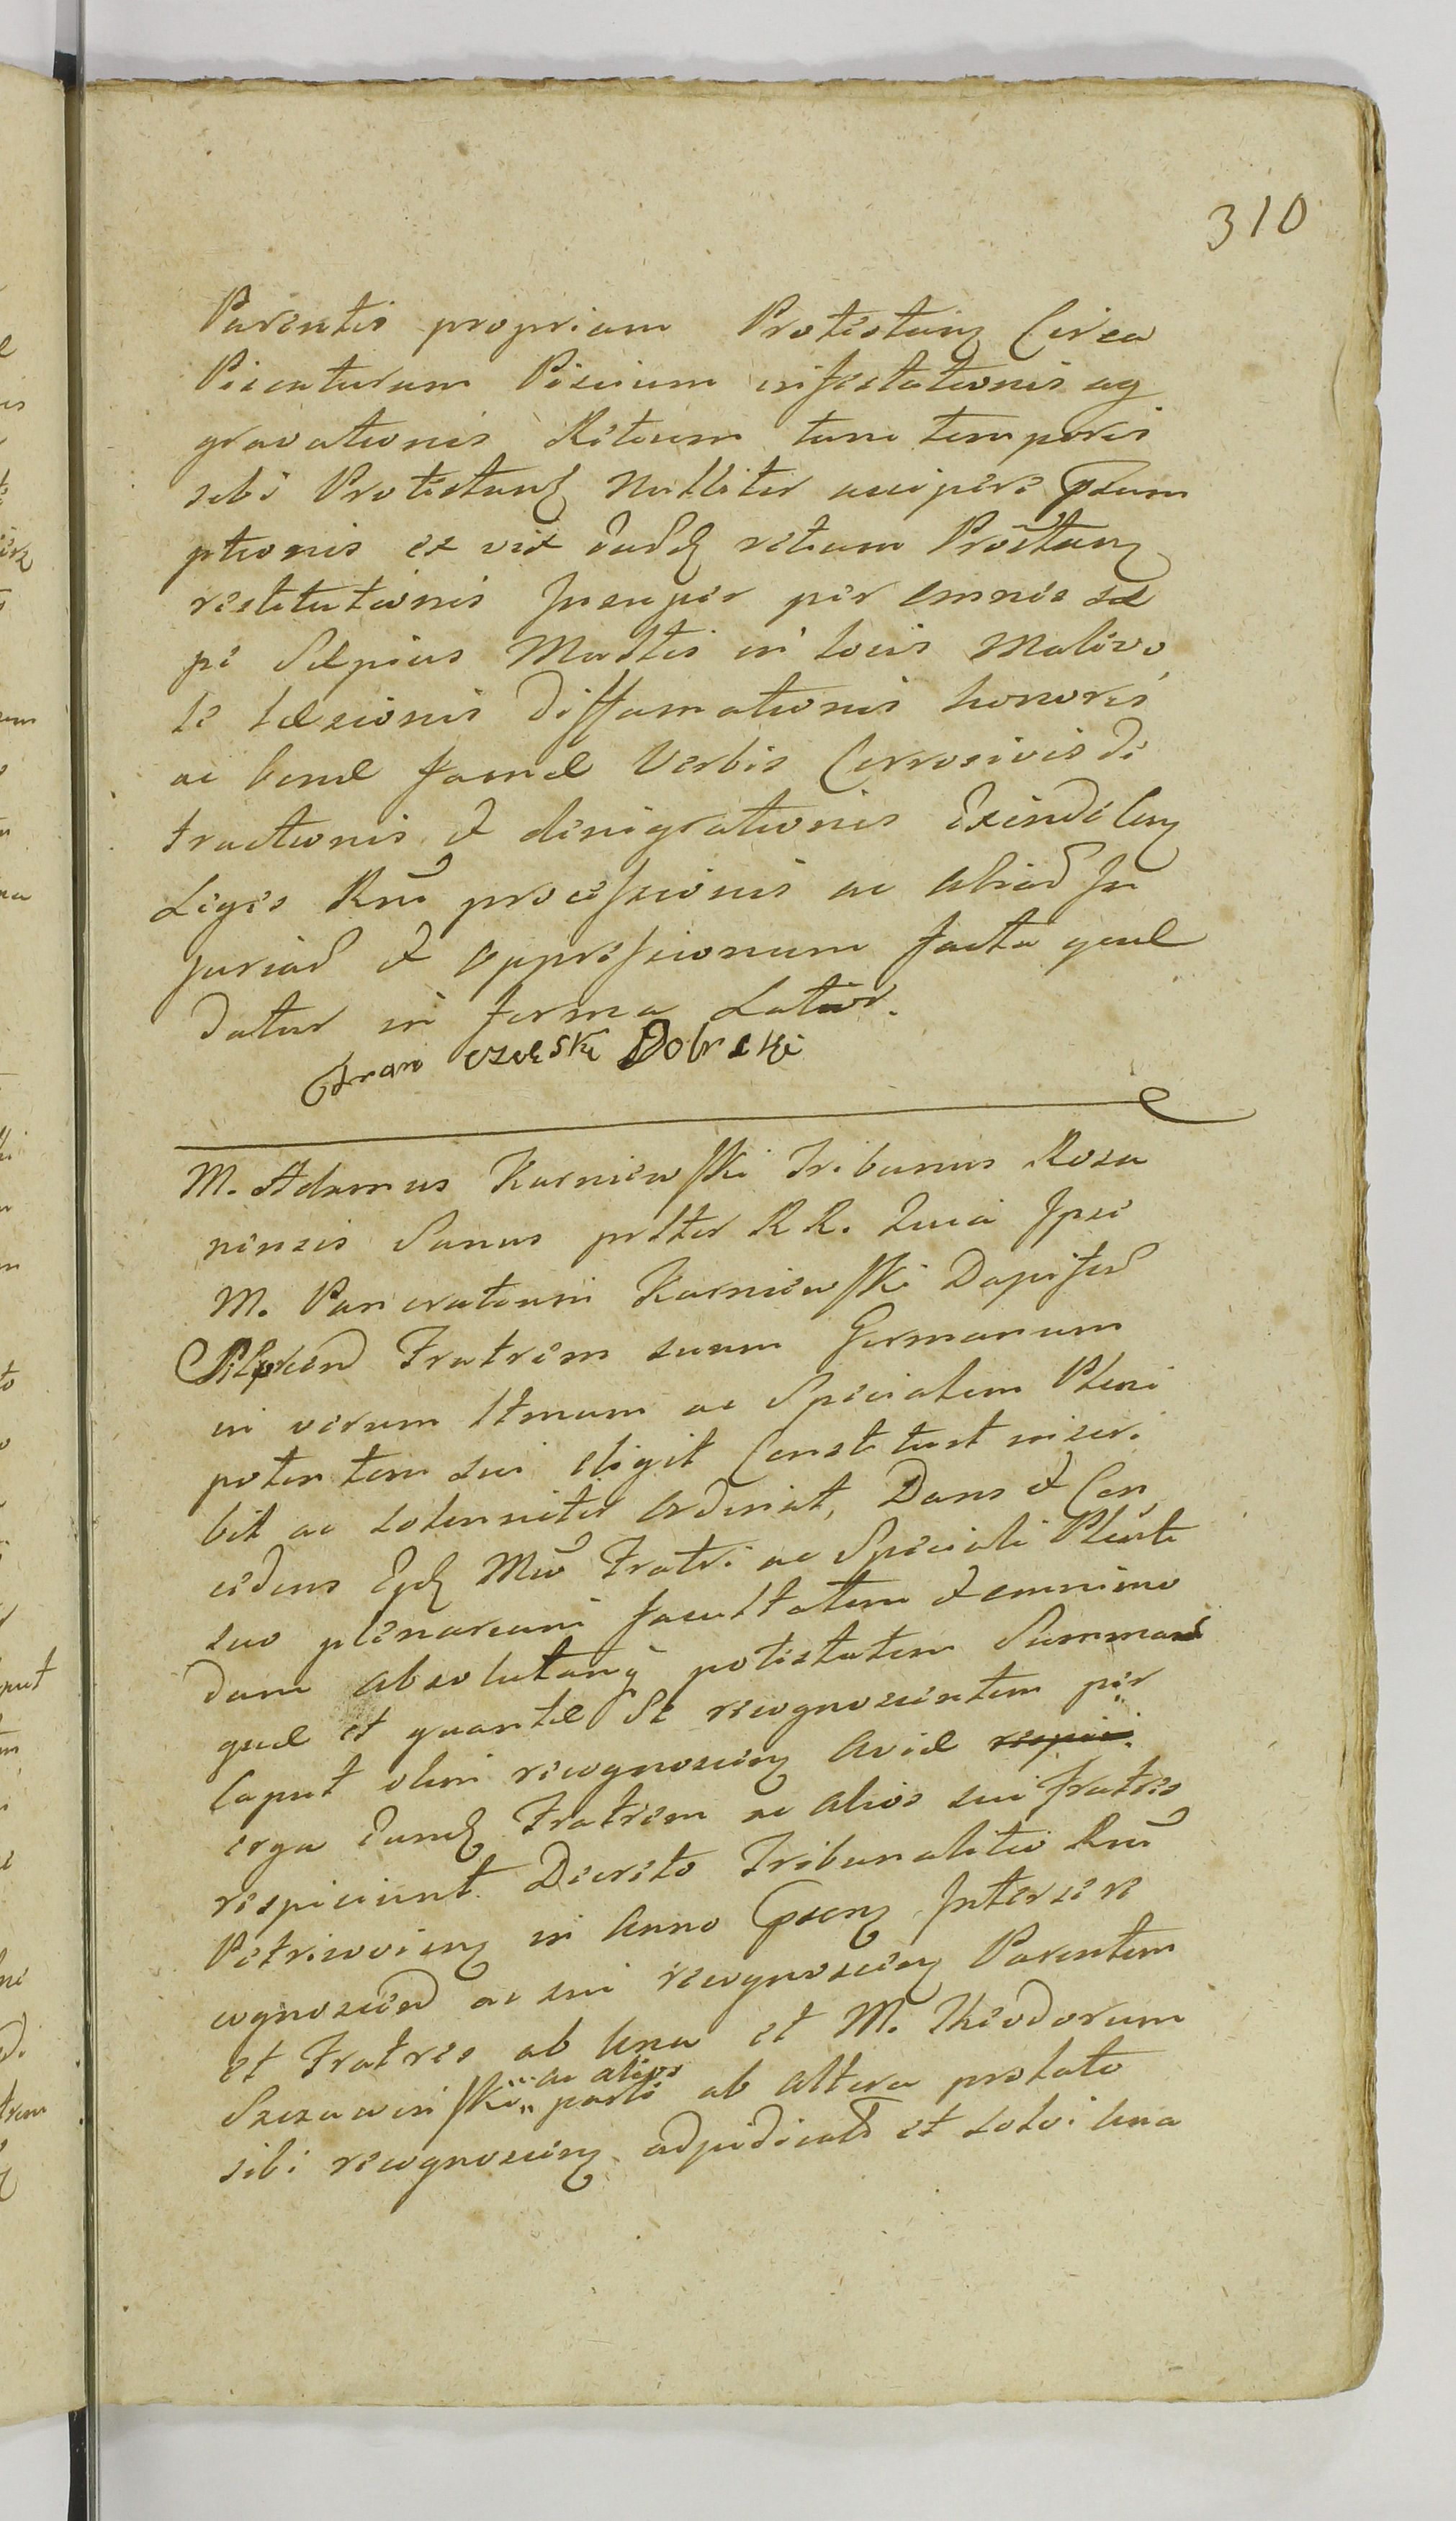 310
Parentis propriam Protestang Circa
Piscaturam Piscium infestationis ag
gravationis Retium tum temporis
sibi Protestang Nulliter acciperi Prsum
ptionis et vix eadem retium Protang
restitutionis Insuper per omnes sæ
pe Sæpius Modtis in locis Malevo
le læsionis diffamationis honoris
ac bonæ famæ Verbis Corrosivis de
tractionis et denigrationis Exinde Cong
Legis Rni processionis ac aliad In
juriad et oppressionum facta quæ
datur in forma Latior.
Franciszek Dobrski
M. Adamus Karniewski Tribunus Roza
nensis Sanus pntter RR. Quia Ipse
M. Pancratium Karniewski Dapiferd
Fratrem suum Germanum
in verum Ltmum ac Specialem Pleni
potentem sui eligit Constituit inscri
bit ac solenniter ordinat, Dans et Con
cedens Mco Fratri ac Speciali Plenti
suo plenariam facultatem et omnimo
dam absolutamq potestatem Summad
quæ et quantæ Se recognoscentem per
Caput olim recognosceng Aviæ
erga eund Fratrem ac alios sui fratres
respicient Decreto Tribunalitio Rni
Petricovieng in Anno Prseng Inter se re
cognosced ac sui recognosceng Parentem
et Fratres ab una et M. Theodorum
Szczawinski ac alios parte ab altera prolato
sibi recognosceng adjudicatd et solvi una